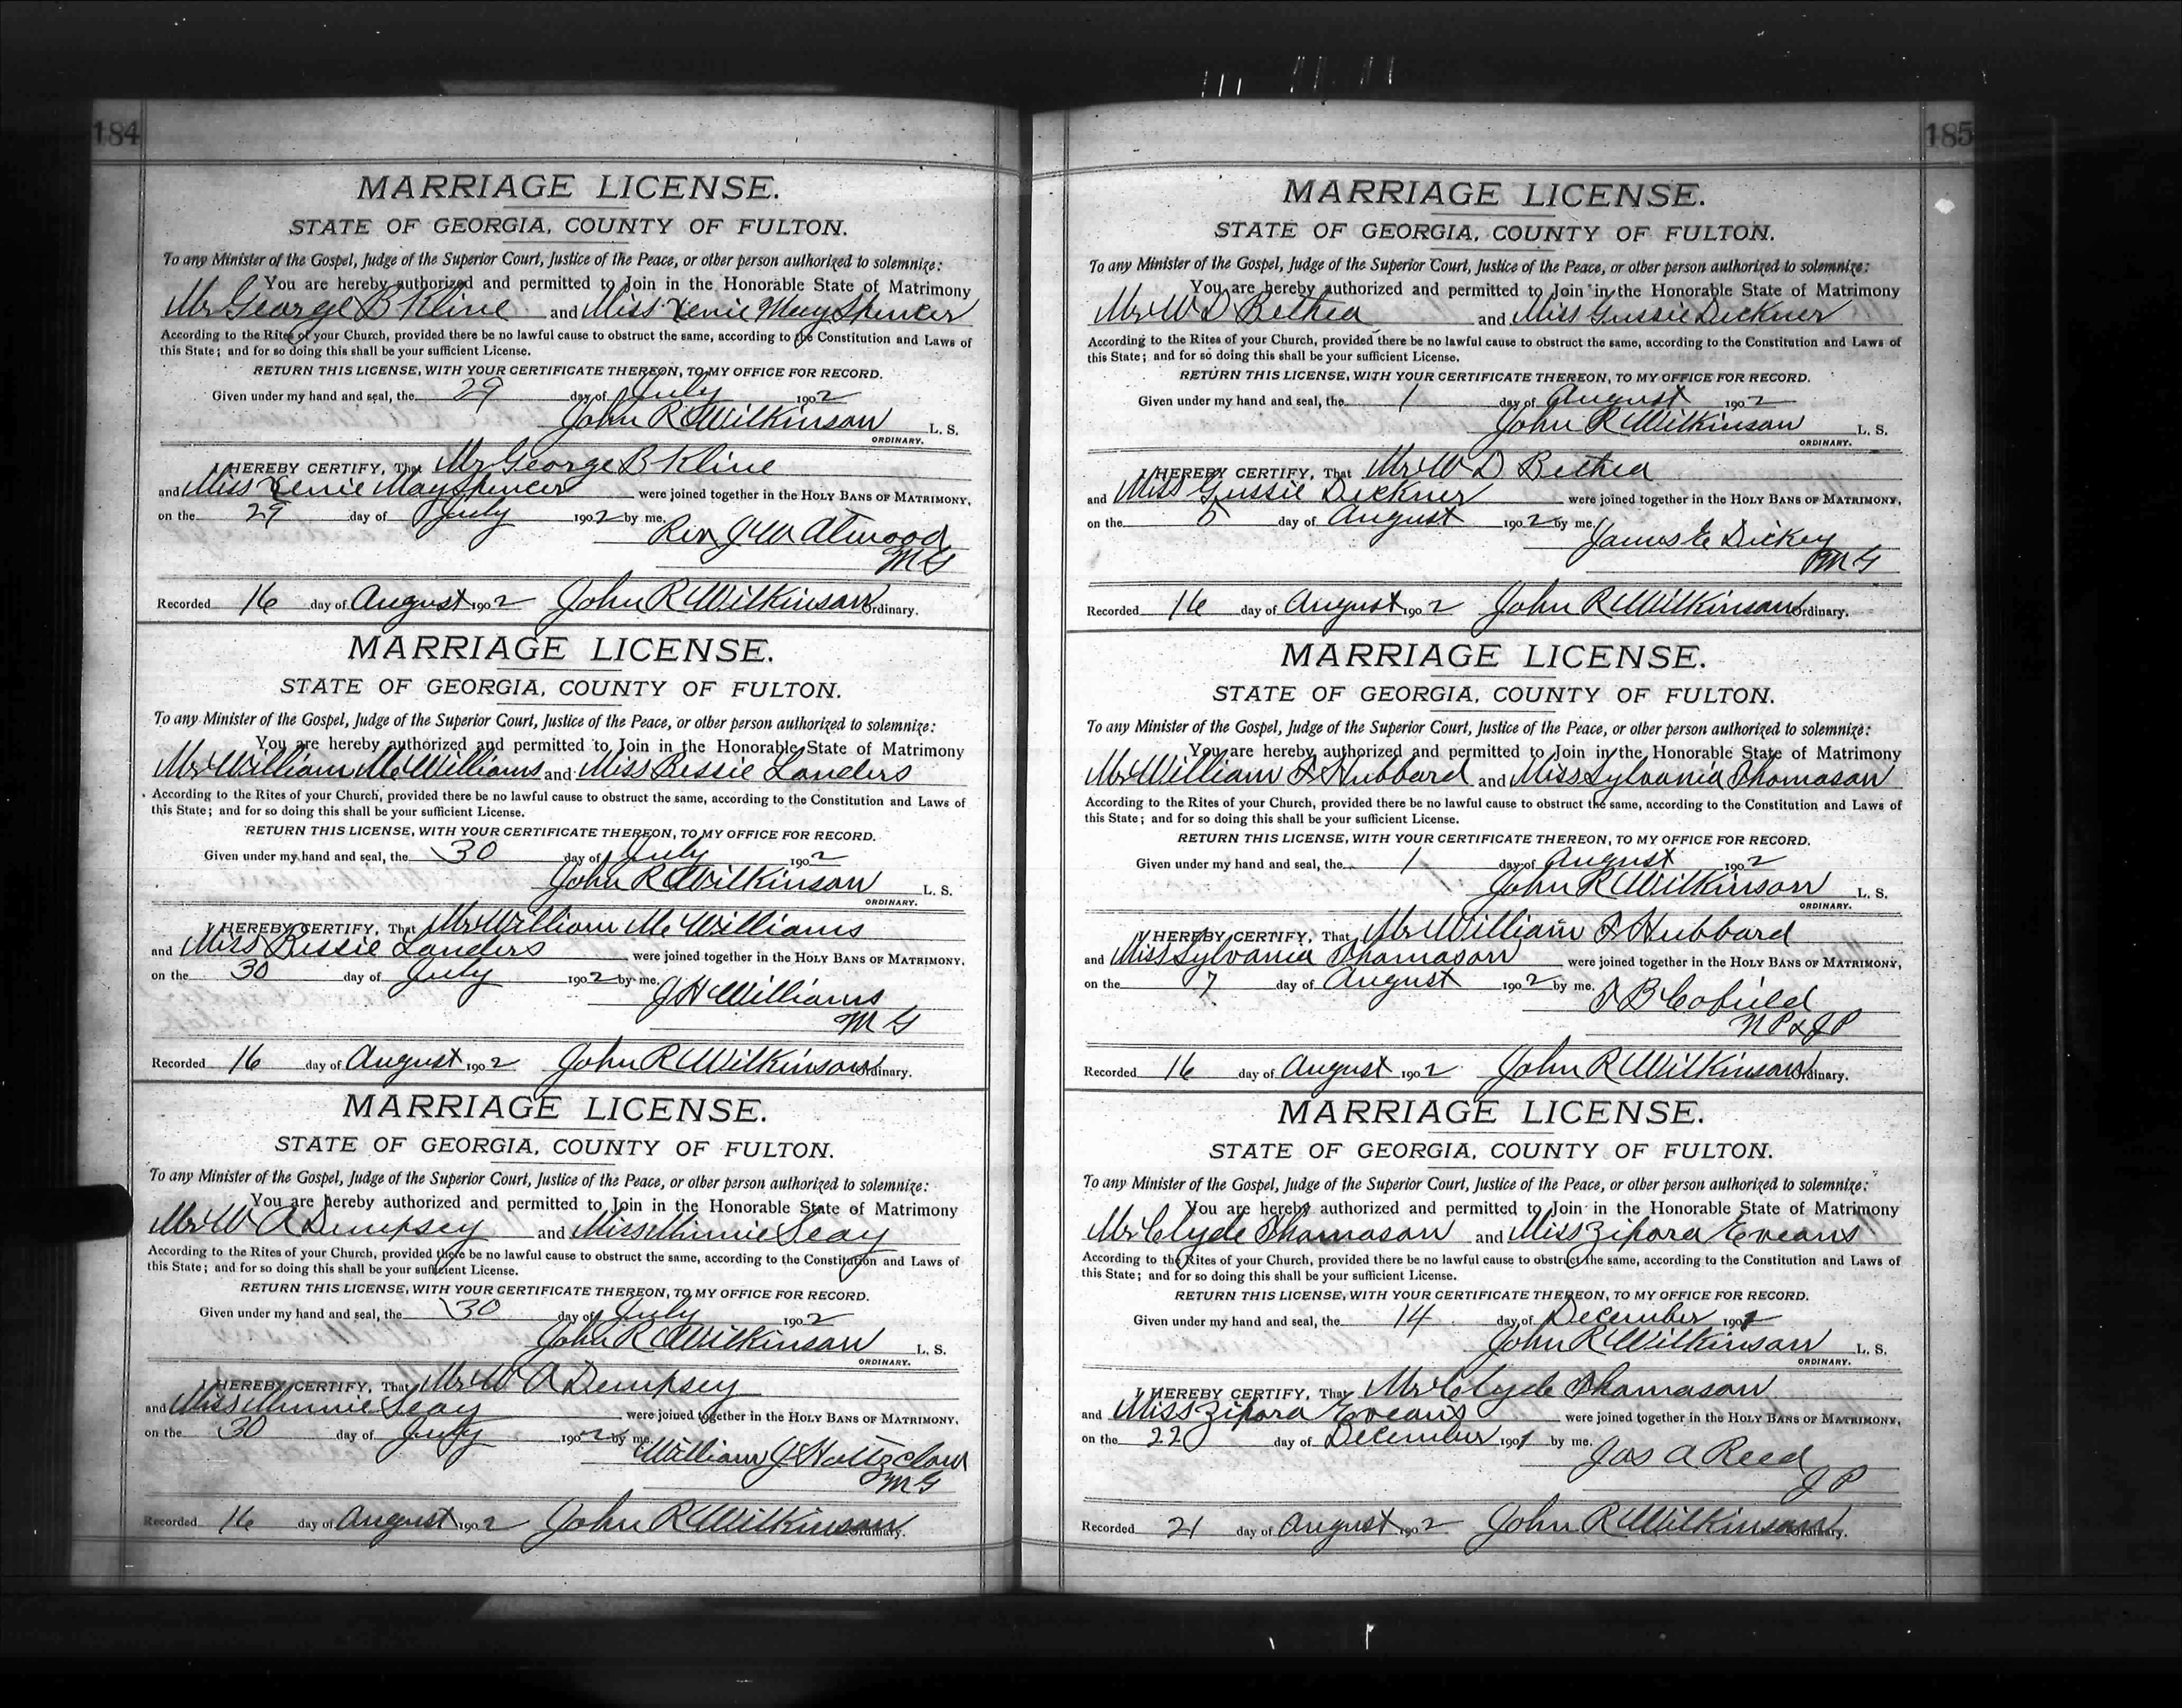 184
MARRIAGE LICENSE.
STATE OF GEORGIA, COUNTY OF FULTON.
To any Minister of the Gospel, Judge of the Superior Court, Justice of the Peace, or other person authorized to solemnize:
You are hereby authorized and permitted to Join in the Honorable State of Matrimony
Mr George B Kline and Miss Xenie May Spencer
According to the Rites of your Church, provided there be no lawful cause to obstruct the same, according to the Constitution and Laws of
this State; and for so doing this shall be your sufficient License.
RETURN THIS LICENSE, WITH YOUR CERTIFICATE THEREON, TO MY OFFICE FOR RECORD.
Given under my hand and seal, the 29 day of July 1902
John R Wilkinson L. S.
ORDINARY.
I HEREBY CERTIFY, That Mr George B Kline
and Miss Xenie May Spencer were joined together in the HOLY BANS OF MATRIMONY,
on the 29 day of July 1902 by me.
Rev J W Atwood
M G
Recorded 16 day of August 1902 John R Wilkinson Ordinary.
MARRIAGE LICENSE.
STATE OF GEORGIA, COUNTY OF FULTON.
To any Minister of the Gospel, Judge of the Superior Court, Justice of the Peace, or other person authorized to solemnize:
You are hereby authorized and permitted to Join in the Honorable State of Matrimony
Mr William McWilliams and Miss Bessie Landers
According to the Rites of your Church, provided there be no lawful cause to obstruct the same, according to the Constitution and Laws of
this State; and for so doing this shall be your sufficient License.
RETURN THIS LICENSE, WITH YOUR CERTIFICATE THEREON, TO MY OFFICE FOR RECORD.
Given under my hand and seal, the 30 day of July 1902
John R Wilkinson L. S.
ORDINARY.
I HEREBY CERTIFY, That Mr William McWilliams
and Miss Bessie Landers were joined together in the HOLY BANS OF MATRIMONY,
on the 30 day of July 1902 by me.
J H Williams
M G
Recorded 16 day of August 1902 John R Wilkinson Ordinary.
MARRIAGE LICENSE.
STATE OF GEORGIA, COUNTY OF FULTON.
To any Minister of the Gospel, Judge of the Superior Court, Justice of the Peace, or other person authorized to solemnize:
You are hereby authorized and permitted to Join in the Honorable State of Matrimony
Mr W A Dempsey and Miss Minnie Seay
According to the Rites of your Church, provided there be no lawful cause to obstruct the same, according to the Constitution and Laws of
this State; and for so doing this shall be your sufficient License.
RETURN THIS LICENSE, WITH YOUR CERTIFICATE THEREON, TO MY OFFICE FOR RECORD.
Given under my hand and seal, the 30 day of July 1902
John R Wilkinson L. S.
ORDINARY.
I HEREBY CERTIFY, That Mr W A Dempsey
and Miss Minnie Seay were joined together in the HOLY BANS OF MATRIMONY,
on the 30 day of July 1902 by me.
William J Holtzclaw
M G
Recorded 16 day of August 1902 John R Wilkinson Ordinary.
185
MARRIAGE LICENSE.
STATE OF GEORGIA, COUNTY OF FULTON.
To any Minister of the Gospel, Judge of the Superior Court, Justice of the Peace, or other person authorized to solemnize:
You are hereby authorized and permitted to Join in the Honorable State of Matrimony
Mr W D Bethea and Miss Gussie Dickner
According to the Rites of your Church, provided there be no lawful cause to obstruct the same, according to the Constitution and Laws of
this State; and for so doing this shall be your sufficient License.
RETURN THIS LICENSE, WITH YOUR CERTIFICATE THEREON, TO MY OFFICE FOR RECORD.
Given under my hand and seal, the 1 day of August 1902
John R Wilkinson L. S.
ORDINARY.
I HEREBY CERTIFY, That Mr W D Bethea
and Miss Gussie Dickner were joined together in the HOLY BANS OF MATRIMONY,
on the 5 day of August 1902 by me.
James E Dickey
M G
Recorded 16 day of August 1902 John R Wilkinson Ordinary.
MARRIAGE LICENSE.
STATE OF GEORGIA, COUNTY OF FULTON.
To any Minister of the Gospel, Judge of the Superior Court, Justice of the Peace, or other person authorized to solemnize:
You are hereby authorized and permitted to Join in the Honorable State of Matrimony
Mr William F Hubbard and Miss Sylvania Thomason
According to the Rites of your Church, provided there be no lawful cause to obstruct the same, according to the Constitution and Laws of
this State; and for so doing this shall be your sufficient License.
RETURN THIS LICENSE, WITH YOUR CERTIFICATE THEREON, TO MY OFFICE FOR RECORD.
Given under my hand and seal, the 1 day of August 1902
John R Wilkinson L. S.
ORDINARY.
I HEREBY CERTIFY, That Mr William F Hubbard
and Miss Sylvania Thomason were joined together in the HOLY BANS OF MATRIMONY,
on the 7 day of August 1902 by me.
B Cofield
N P & J P
Recorded 16 day of August 1902 John R Wilkinson Ordinary.
MARRIAGE LICENSE.
STATE OF GEORGIA, COUNTY OF FULTON.
To any Minister of the Gospel, Judge of the Superior Court, Justice of the Peace, or other person authorized to solemnize:
You are hereby authorized and permitted to Join in the Honorable State of Matrimony
Mr Clyde Thomason and Miss Zipora Eveans
According to the Rites of your Church, provided there be no lawful cause to obstruct the same, according to the Constitution and Laws of
this State; and for so doing this shall be your sufficient License.
RETURN THIS LICENSE, WITH YOUR CERTIFICATE THEREON, TO MY OFFICE FOR RECORD.
Given under my hand and seal, the 14 day of December 1901
John R Wilkinson L. S.
ORDINARY.
I HEREBY CERTIFY, That Mr Clyde Thomason
and Miss Zipora Eveans were joined together in the HOLY BANS OF MATRIMONY,
on the 22 day of December 1901 by me.
Jas A Reed
J P
Recorded 21 day of August 1902 John R Wilkinson Ordinary.